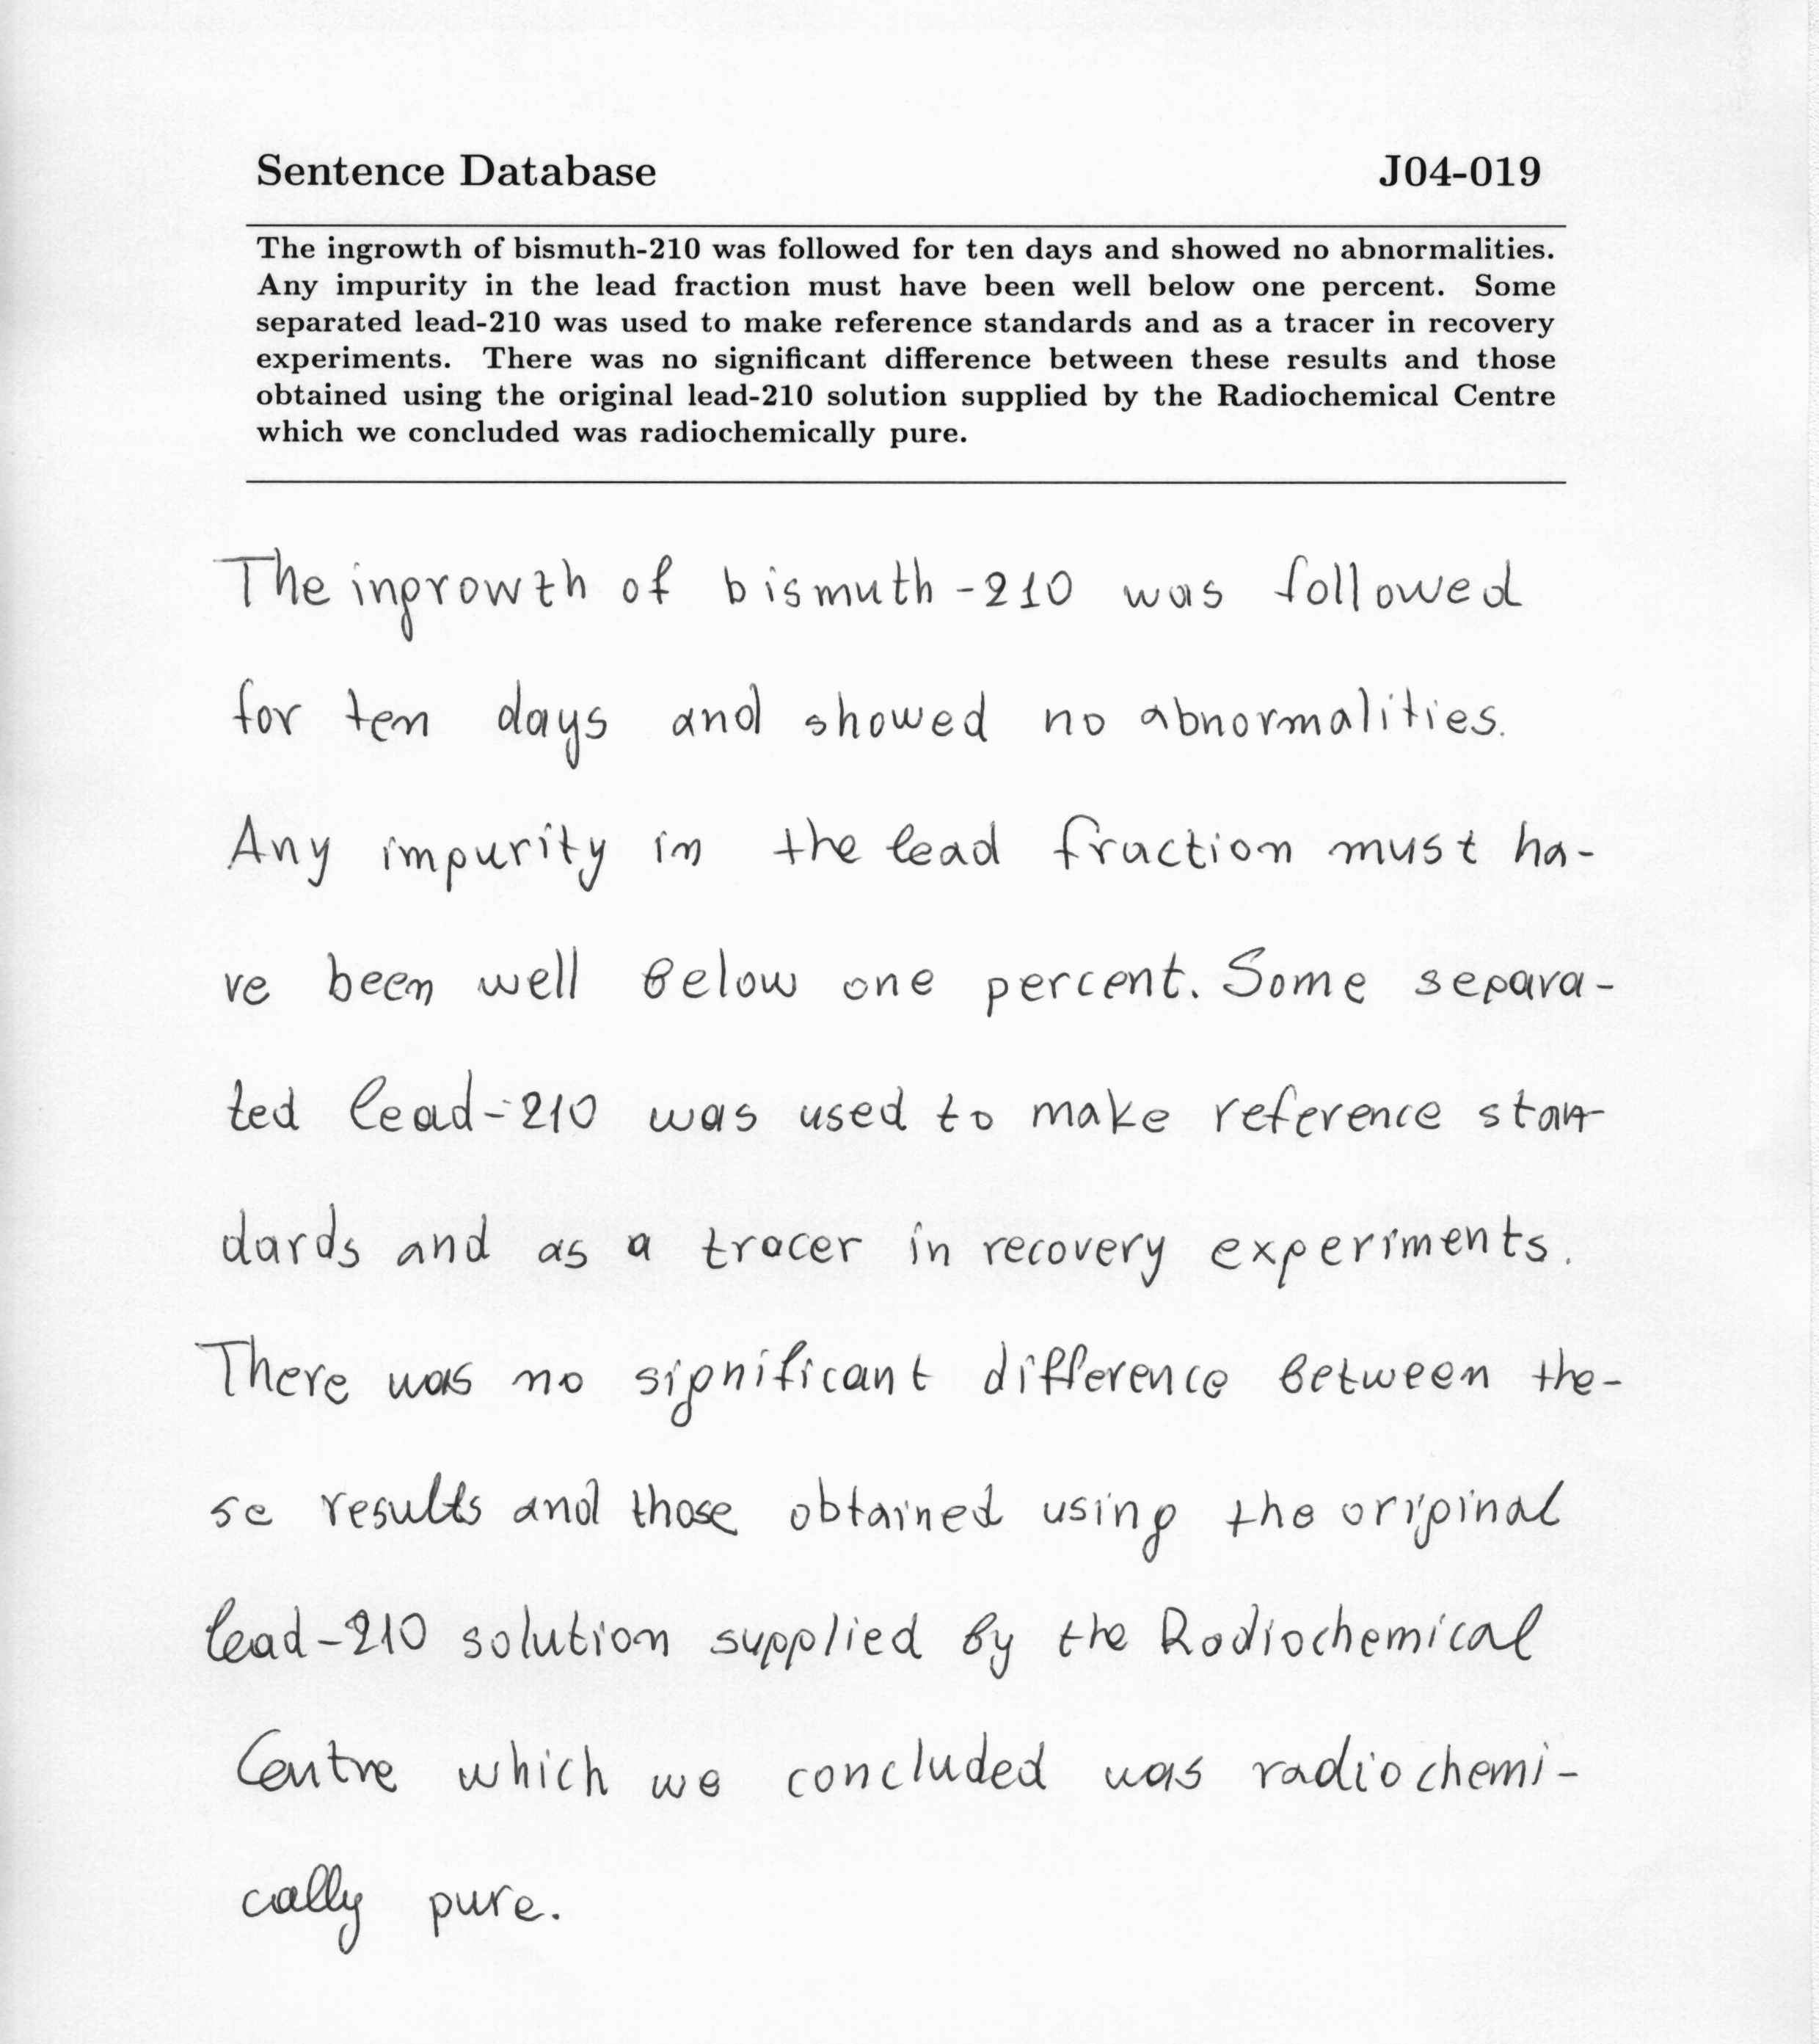 Sentence Database J04-019
The ingrowth of bismuth-210 was followed for ten days and showed no abnormalities.
Any impurity in the lead fraction must have been well below one percent. Some
separated lead-210 was used to make reference standards and as a tracer in recovery
experiments. There was no significant difference between these results and those
obtained using the original lead-210 solution supplied by the Radiochemical Centre
which we concluded was radiochemically pure.
The ingrowth of bismuth-210 was followed
for ten days and showed no abnormalities.
Any impurity in the lead fraction must ha-
ve been well below one percent. Some separa-
ted lead-210 was used to make reference stan-
dards and as a tracer in recovery experiments.
There was no significant difference between the-
se results and those obtained using the original
lead-210 solution supplied by the Radiochemical
Centre which we concluded was radiochemi-
cally pure.